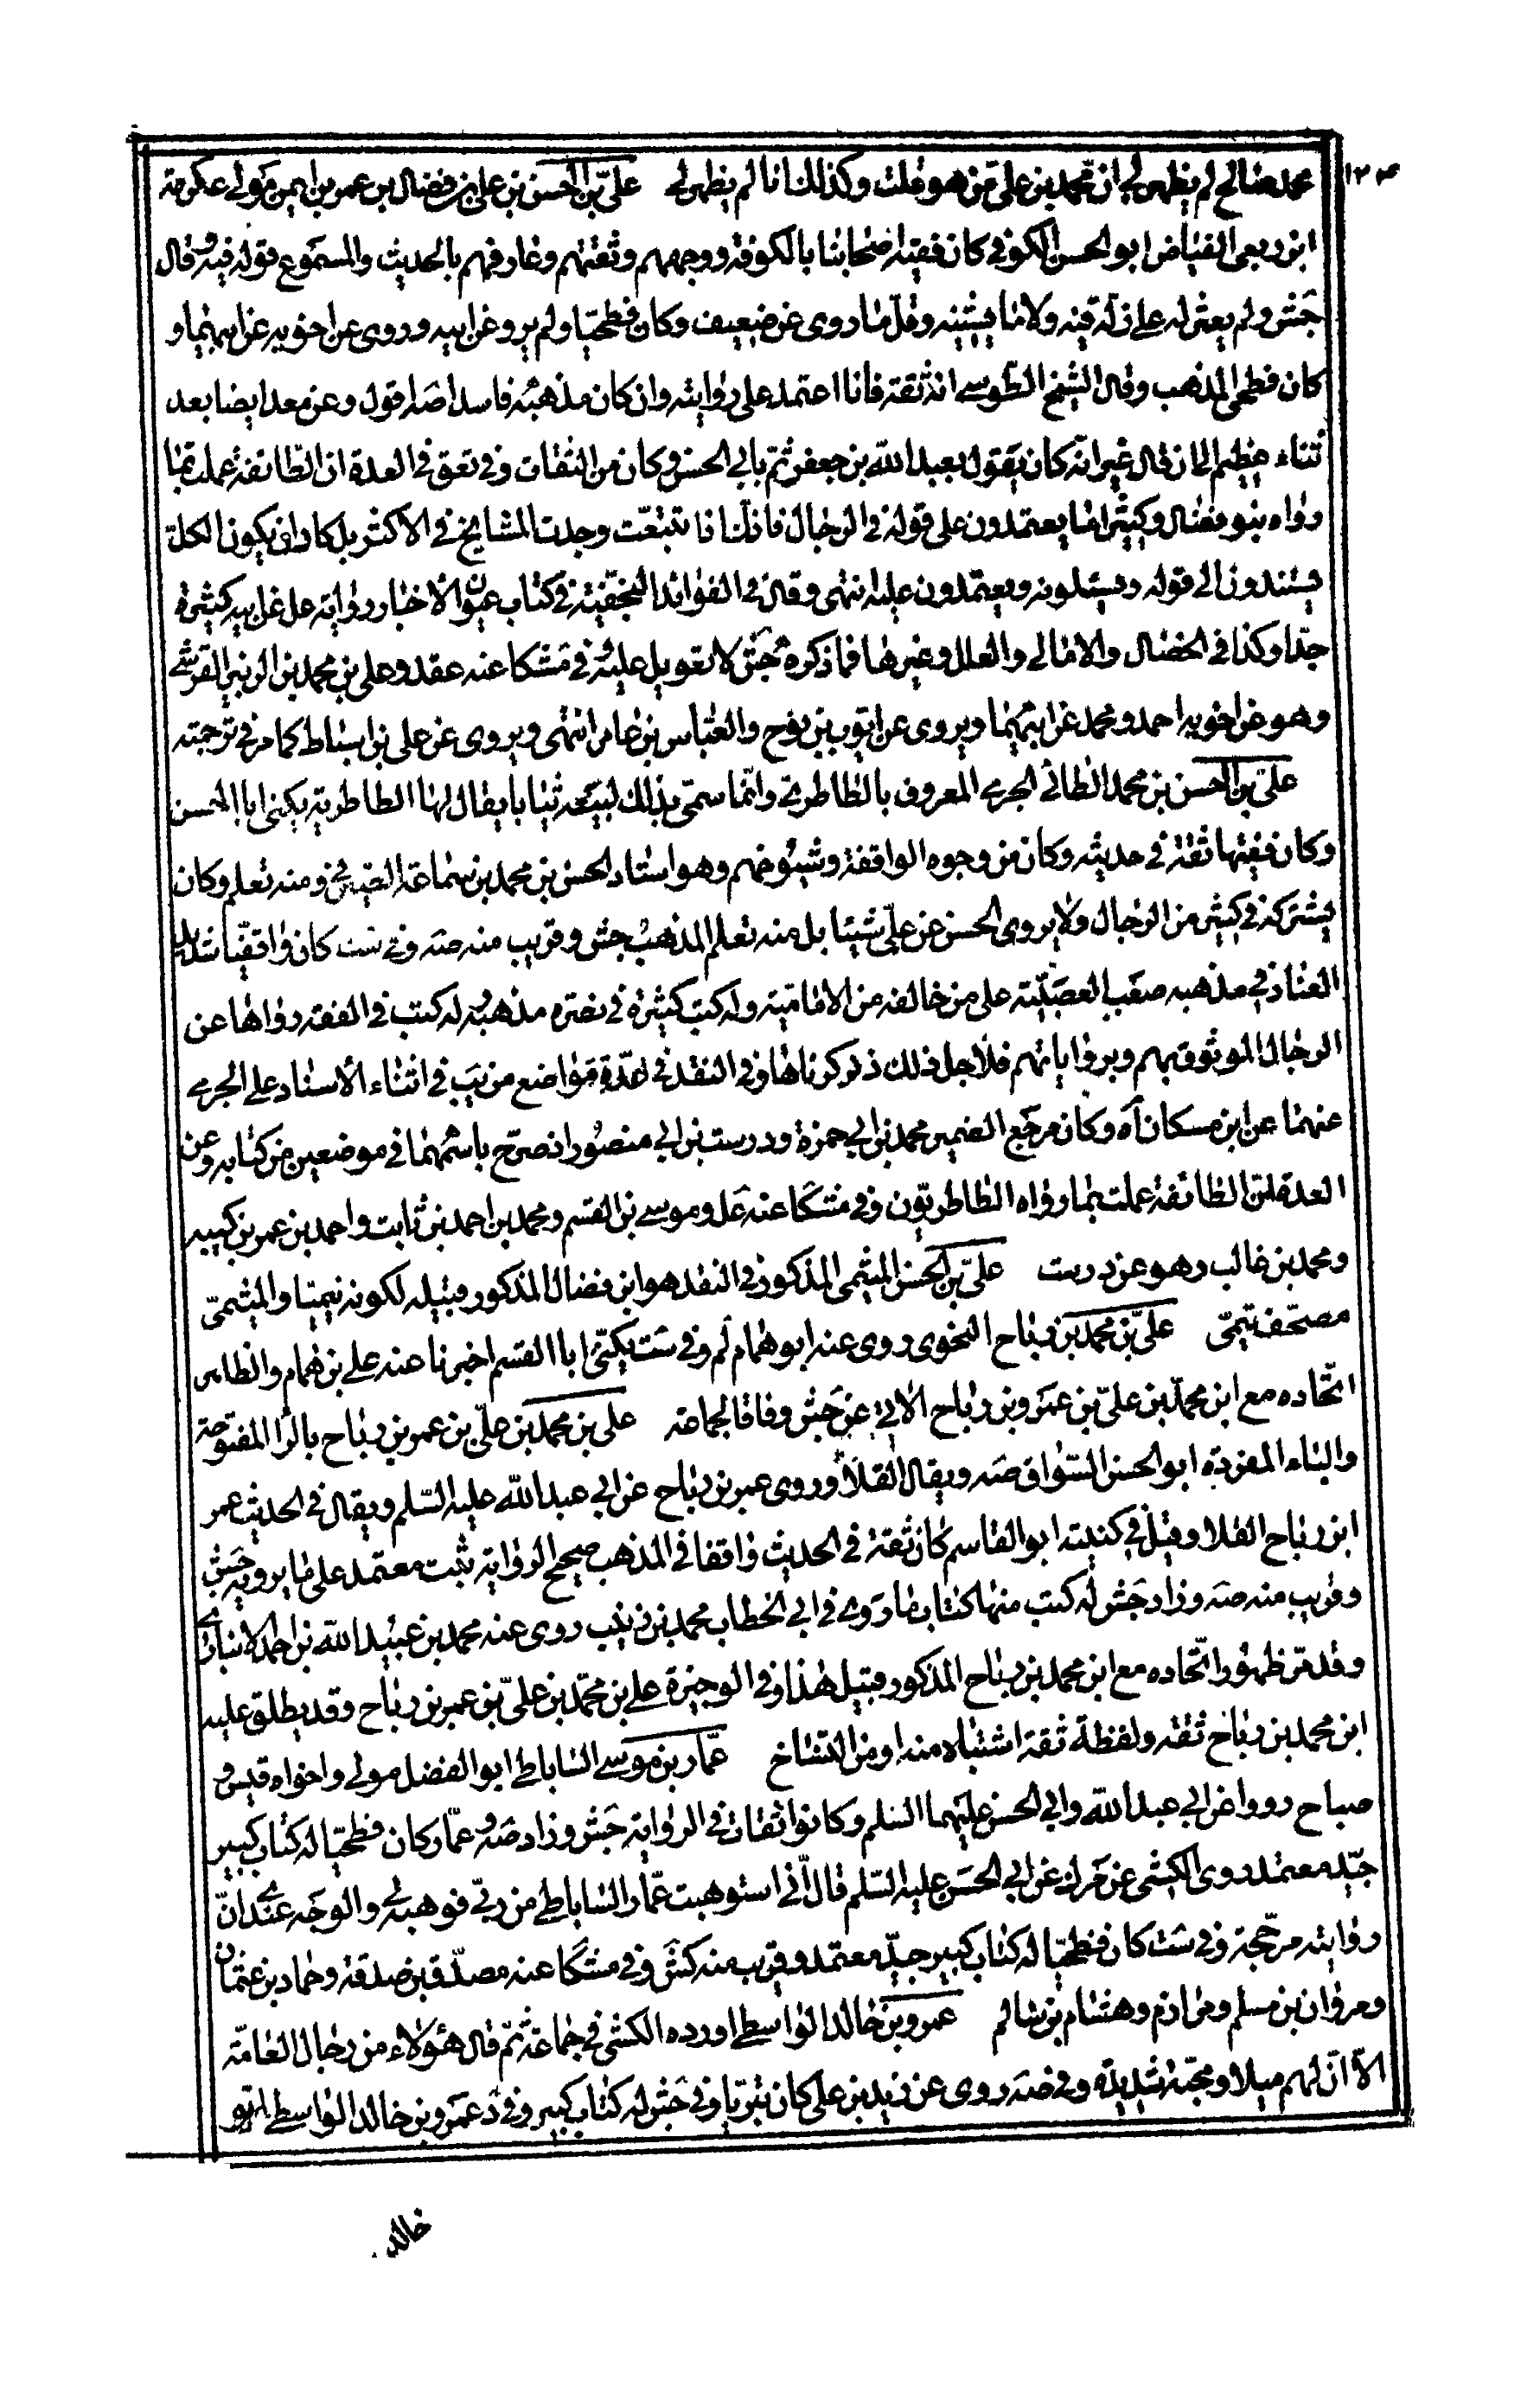 ١٢٤
محمد صالح لم يظهر لي ان محمد بن علي من هو قلت وكذلك انا لم يظهر لي علي بن الحسن بن علي بن فضال بن عمر بن ايمن مولى عكرمة
ابن ربعى الفياض ابو الحسن الكوفي كان فقيه اصحابنا بالكوفة ووجههم وثقتهم وعارفهم بالحديث والمسموع قوله فيه وقال
جش ولم يعثر له على زلة فيه ولا ما يشينه وقل ما روى عن ضعيف وكان فطحيا ولم يرو عن ابيه وروى عن اخويه عن ابيهما و
كان فطحى المذهب وقال الشيخ الطوسي انه ثقة فانا اعتمد على روايته وان كان مذهبه فاسدا صه اقول وعن معد ايضا بعد
ثناء عظيم الى ان قال غير انه كان يقول بعبد الله بن جعفر ثم بابي الحسن وكان من الثقات وفي تعق في العدة ان الطائفة عملت بما
رواه بنو فضال وكثيرا ما يعتمدون على قوله في الرجال فانك اذا تتبعت وجدت المشايخ في الاكثر بل كاد ان يكون الكل
يستندون الى قوله ويسئلونه ويعتمدون عليه انتهى وقال في الفوائد النجفية في كتاب عيون الاخبار رواية عل عن ابيه كثيرة
جدا وكذا في الخصال والامالي والعلل وغيرها فما ذكره جش لا تعويل عليه وفي مشكا عنه عقد وعلي بن محمد بن الزبير القرشي
وهو عن اخويه احمد ومحمد عن ابيهما ويروى عن ايوب بن نوح والعباس بن عامر انتهى ويروى عن علي بن اسباط كما مر في ترجمته
علي بن الحسن بن محمد الطائي الجرمي المعروف بالطاطري وانما سمى بذلك لبيعه ثيابا يقال لها الطاطرية يكنى ابا الحسن
وكان فقيها ثقة في حديثه وكان من وجوه الواقفة وشيوخهم وهو استاد الحسن بن محمد بن سماعة الصيرفي ومنه تعلم وكان
يشركه في كثير من الرجال ولا يروى الحسن عن علي شيئا بل منه تعلم المذهب جش وقريب منه صه وفي ست كان واقفيا شديد
العناد في مذهبه صعب العصبية على من خالفه من الامامية وله كتب كثيرة في نصرة مذهبه وله كتب في الفقه رواها عن
الرجال الموثوق بهم وبرواياتهم فلاجل ذلك ذكرناها وفي النقد في عدة مواضع من يب في اثناء الاسناد على الجرمي
عنهما عن ابن مسكان اه وكان مرجع الضمير محمد بن ابي حمزة ودرست بن ابي منصور اذ صرح باسمهما في موضعين من كتابه وعن
العدة ان الطائفة عملت بما رواه الطاطريون وفي مشكا عنه عل وموسى بن القسم ومحمد بن احمد بن ثابت واحمد بن عمر بن كيسبه
ومحمد بن غالب وهو عن درست علي بن الحسن الميثمى المذكور في النقد هو ابن فضال المذكور قبيله لكونه تيميا والميثمى
مصحف تيمى علي بن محمد بن رباح النحوى روى عنه ابو همام لم وفي ست يكنى ابا القسم اخبرنا عنه علي بن همام والظاهر
اتحاده مع ابن محمد بن علي بن عمرو بن رباح الآتي عن جش وفاقا لجماعة علي بن محمد بن علي بن عمر بن رباح بالراء المفتوحة
والباء المفردة ابو الحسن السواق صه ويقال القلاء وروى عمر بن رباح عن ابي عبد الله عليه السلم ويقال في الحديث عمر
ابن رباح القلا وقيل في كنيته ابو القاسم كان ثقة في الحديث واقفا في المذهب صحيح الرواية ثبت معتمد على ما يرويه جش
وقريب منه صه وزاد جش له كتب منها كتاب ما روى في ابي الخطاب محمد بن زينب روى عنه محمد بن عبيد الله بن احمد الانبارى
وقد مر ظهور اتحاده مع ابن محمد بن رباح المذكور قبيل هذا وفي الوجيزة علي بن محمد بن علي بن عمر بن رباح وقد يطلق عليه
ابن محمد بن رباح ثقة ولفظة ثقة اشتباه منه او من النساخ عمار بن موسى الساباطي ابو الفضل مولى واخواه قيس و
صباح رووا عن ابي عبد الله وابي الحسن عليهما السلم وكانوا ثقات في الرواية جش وزاد صه وعمار كان فطحيا له كتاب كبير
جيد معتمد روى الكشى عن مرك عن ابي الحسن عليه السلم قال اني استوهبت عمار الساباطي من ربي فوهبه لي والوجه عندي ان
روايته مرجحة وفي ست كان فطحيا له كتاب كبير جيد معتمد وقريب منه كش وفي مشكا عنه مصدق بن صدقة وحماد بن عثمان
ومروان بن مسلم ومرازم وهشام بن سالم عمرو بن خالد الواسطي اورده الكشى في جماعة ثم قال هؤلاء من رجال العامة
الا ان لهم ميلا ومحبة شديدة وفي صه روى عن زيد بن علي كان بتريا وفي جش له كتاب كبير وفي د عمرو بن خالد الواسطي ابو
خالد